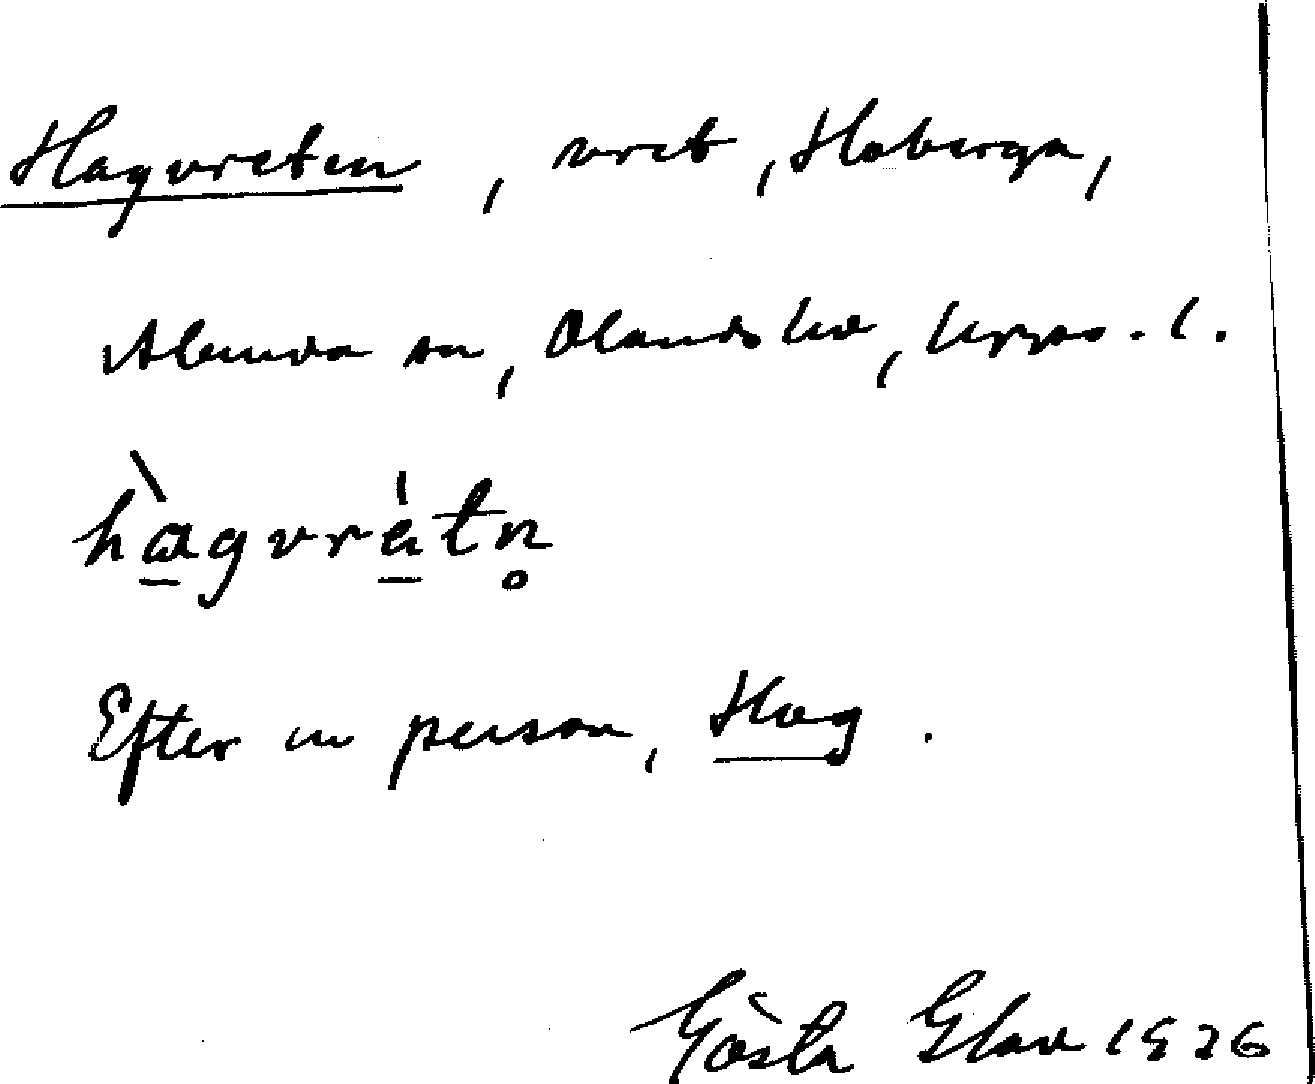 Hagvreten, vret, Haberga,
Almunga sn, Olands hd, Upps. l.
hàgvrétn̥
Efter en person, Hag.
Gösta Elav 1926